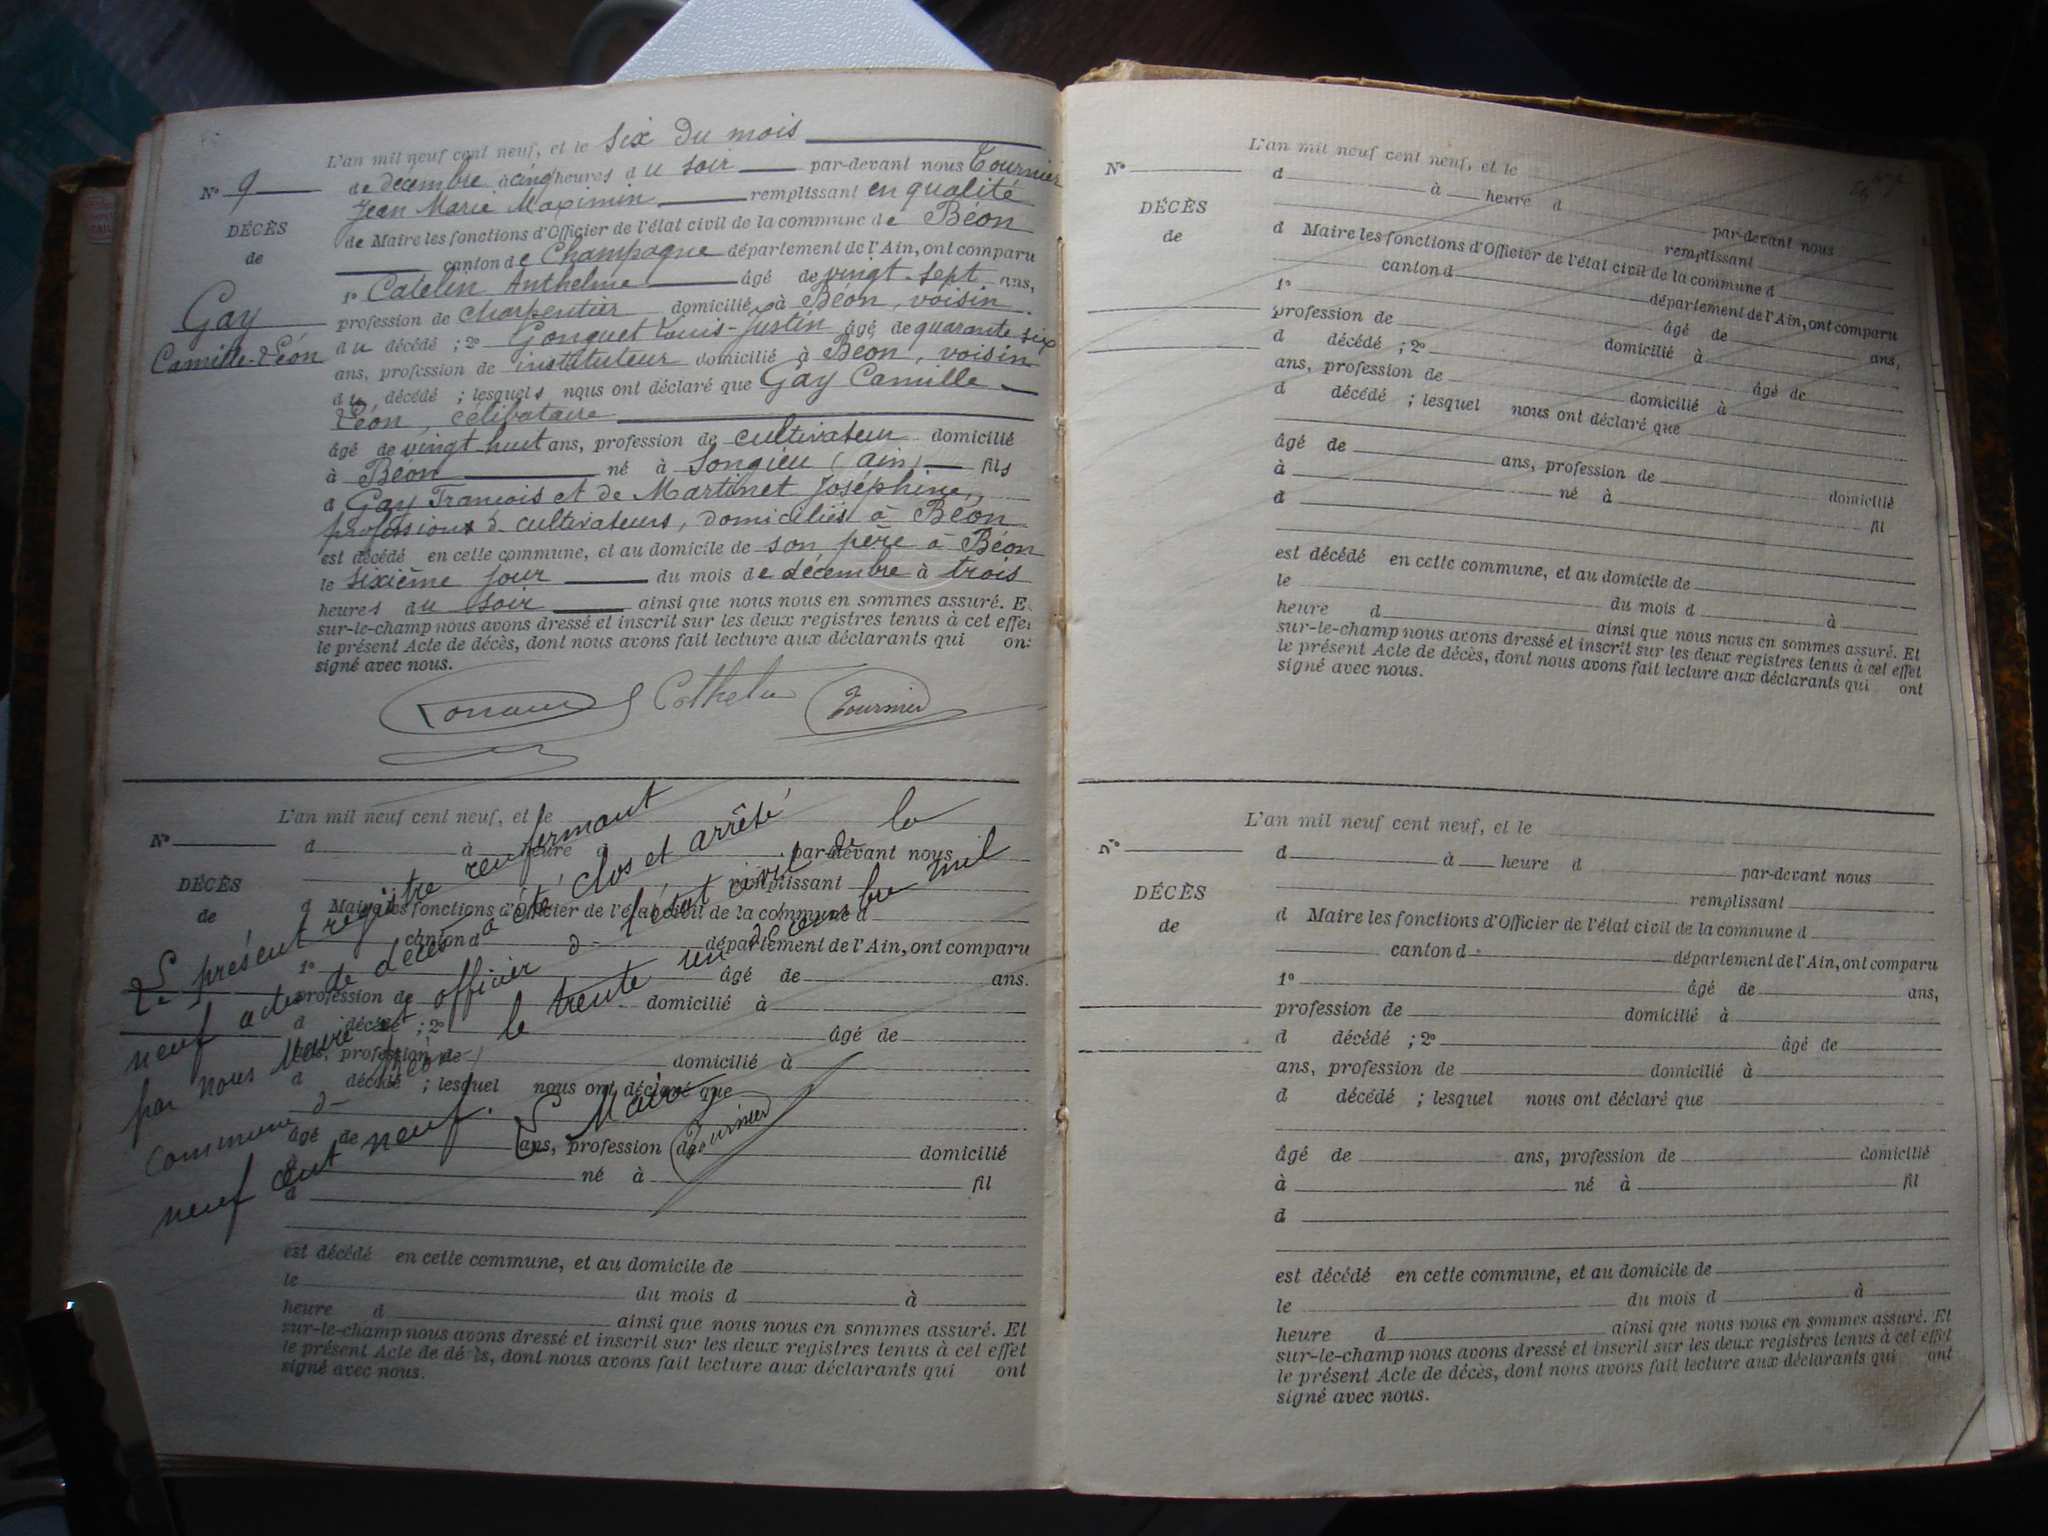 L'an mil neuf cent neuf, et le six du mois
N° 9 de décembre à cinq heures du soir par-devant nous Tournier
Jean Marie Maximin remplissant en qualité
DÉCÈS
de
de Maire les fonctions d'Officier de l'état civil de la commune de Béon
canton de Champagne département de l'Ain, ont comparu
1° Catelin Anthelme âgé de vingt-sept ans,
Gay
Camille-Léon
profession de charpentier domicilié à Béon, voisin
du décédé ; 2° Gonguet Louis-Justin âgé de quarante six
ans, profession de instituteur domicilié à Béon, voisin
du décédé ; lesquels nous ont déclaré que Gay Camille
Léon, célibataire
âgé de vingt huit ans, profession de cultivateur domicilié
à Béon né à Songieu (ain) fils
d Gay François et de Martinet Joséphine,
professions de cultivateurs, domiciliés à Béon
est décédé en cette commune, et au domicile de son père à Béon
le sixième jour du mois de décembre à trois
heures du soir ainsi que nous nous en sommes assuré. E
sur-le-champ nous avons dressé et inscrit sur les deux registres tenus à cet effet
le présent Acte de décès, dont nous avons fait lecture aux déclarants qui ont
signé avec nous.
Tournier
L'an mil neuf cent neuf, et le
N° d à heure d par-devant nous
remplissant
DÉCÈS
de
d Maire les fonctions d'Officier de l'état civil de la commune d
canton d département de l'Ain, ont comparu
1° âgé de ans.
profession de domicilié à
d décédé ; 2° âgé de
ans, profession de domicilié à
d décédé ; lesquel nous ont déclaré que
âgé de ans, profession de domicilié
à né à fil
d
est décédé en cette commune, et au domicile de
le du mois d à
heure d ainsi que nous nous en sommes assuré. Et
sur-le-champ nous avons dressé et inscrit sur les deux registres tenus à cet effet
le présent Acte de décès, dont nous avons fait lecture aux déclarants qui ont
signé avec nous.
Le présent registre renfermant
neuf actes de décès a été clos et arrêté
par nous Maire et officier de l'état civil de la
commune de Béon le trente un décembre mil
neuf cent neuf.
Le Maire
Tournier
L'an mil neuf cent neuf, et le
N° d à heure d par-devant nous
remplissant
DÉCÈS
de
d Maire les fonctions d'Officier de l'état civil de la commune d
canton d département de l'Ain, ont comparu
1° âgé de ans,
profession de domicilié à
d décédé ; 2° âgé de
ans, profession de domicilié à
d décédé ; lesquel nous ont déclaré que
âgé de ans, profession de domicilié
à né à fil
d
est décédé en cette commune, et au domicile de
le du mois d à
heure d ainsi que nous nous en sommes assuré. Et
sur-le-champ nous avons dressé et inscrit sur les deux registres tenus à cet effet
le présent Acte de décès, dont nous avons fait lecture aux déclarants qui ont
signé avec nous.
L'an mil neuf cent neuf, et le
N° d à heure d par-devant nous
remplissant
DÉCÈS
de
d Maire les fonctions d'Officier de l'état civil de la commune d
canton d département de l'Ain, ont comparu
1° âgé de ans,
profession de domicilié à
d décédé ; 2° âgé de
ans, profession de domicilié à
d décédé ; lesquel nous ont déclaré que
âgé de ans, profession de domicilié
à né à fil
d
est décédé en cette commune, et au domicile de
le du mois d à
heure d ainsi que nous nous en sommes assuré. Et
sur-le-champ nous avons dressé et inscrit sur les deux registres tenus à cet effet
le présent Acte de décès, dont nous avons fait lecture aux déclarants qui ont
signé avec nous.